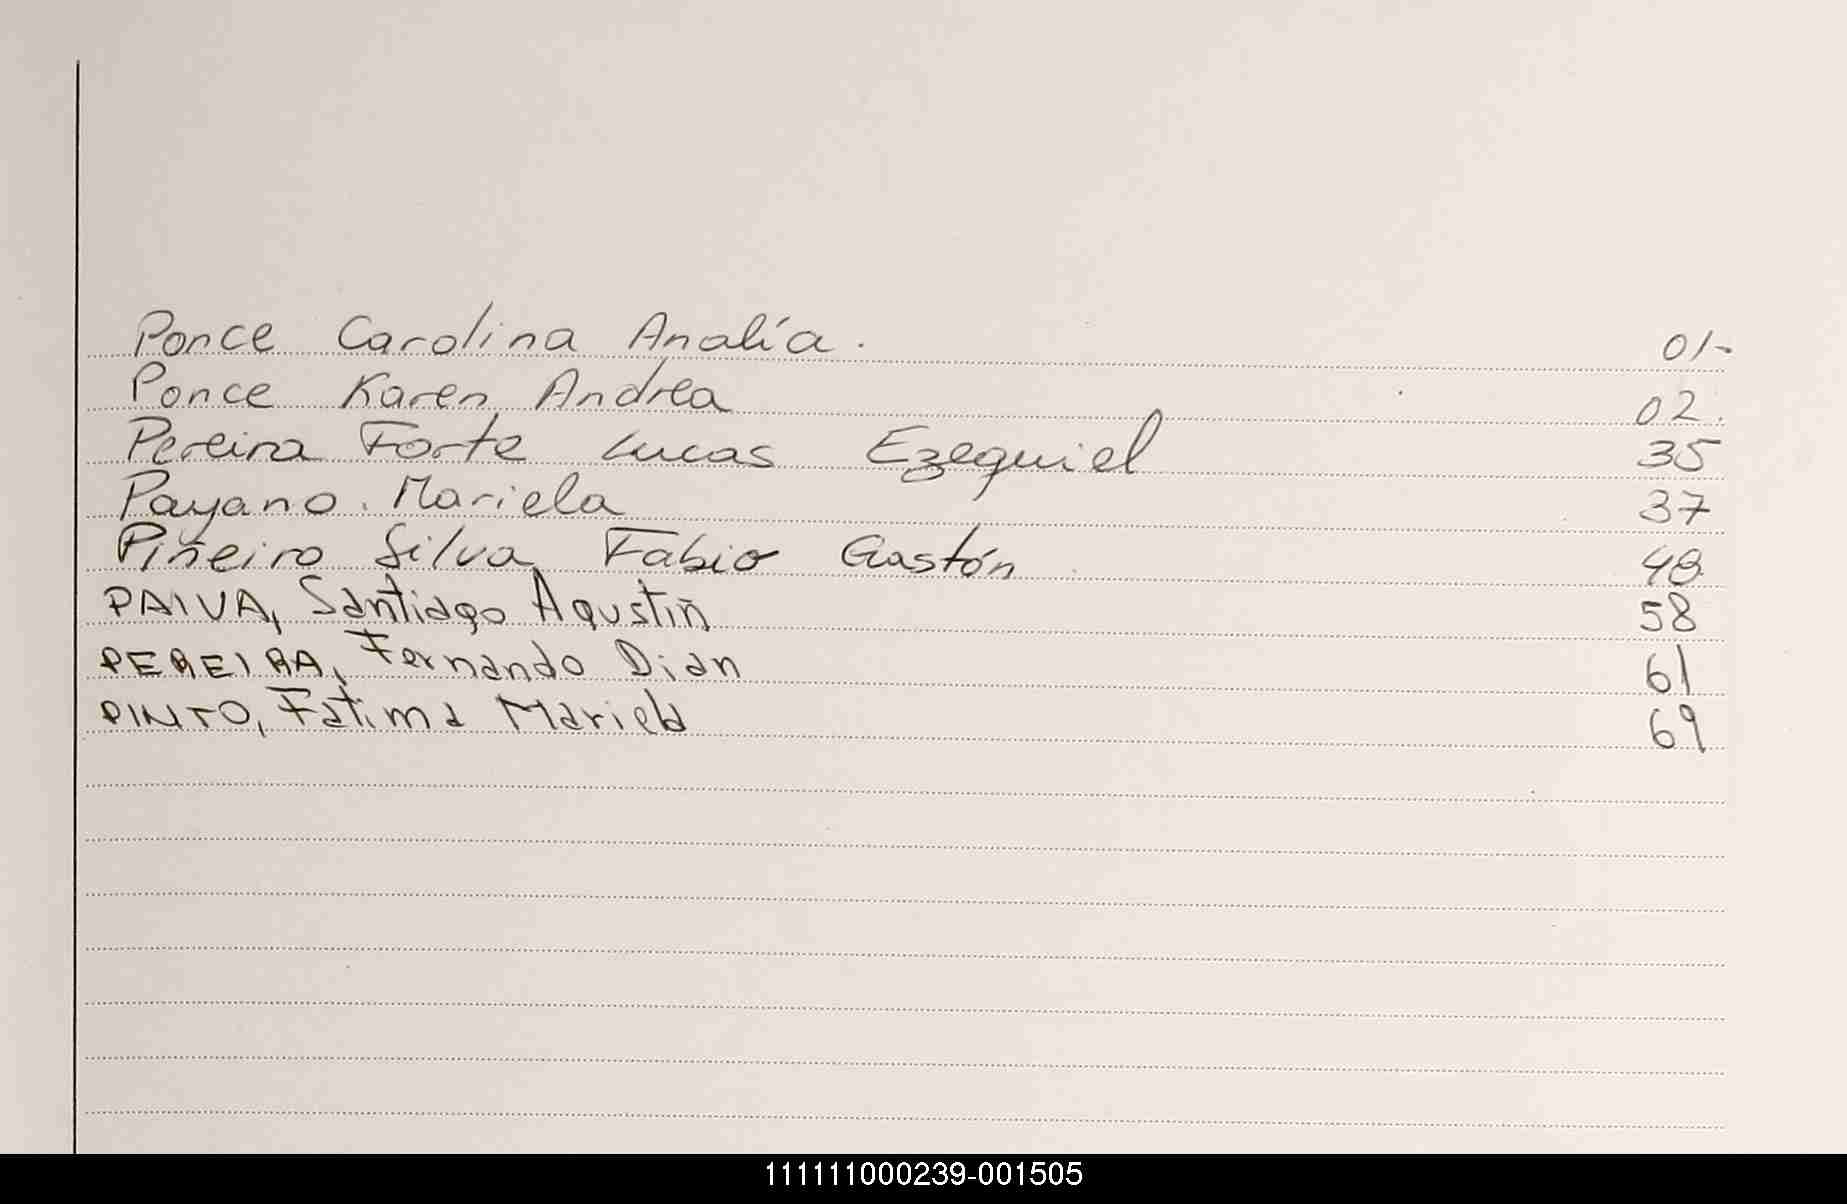 Ponce Carolina Analía. 01-
Ponce Karen Andrea 02.
Pereira Forte Lucas Ezequiel 35
Payano. Mariela 37
Piñeiro Silva Fabio Gastón 48
PAIVA, Santiago Agustin 58
PEREIRA, Fernando Dian 61
PINTO, Fatima Mariela 69
111111000239-001505